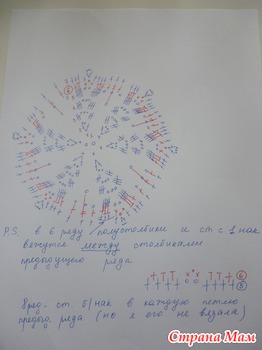 6
P.S. в 6 ряду полустолбики и ст с 1 нак
вяжутся между столбиками
предыдущего ряда
6
5
8 ряд - ст. б/нак в каждую петлю
предыд. ряда (но я его не вязала)
Страна Мам